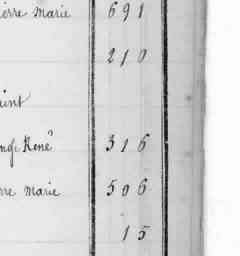 ierre Marie 691
210
aint
ange René 316
rre Marie 506
15